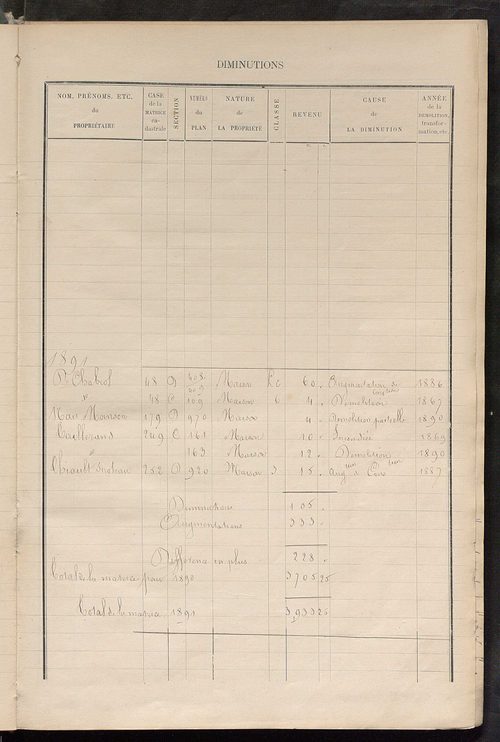 DIMINUTIONS
NOM, PRÉNOMS, ETC. du PROPRIÉTAIRE
CASE de la MATRICE cadastrale
SECTION
NUMÉRO du PLAN
NATURE de LA PROPRIÉTÉ
CLASSE
REVENU
CAUSE de LA DIMINUTION
ANNÉE de la DÉMOLITION, transformation, etc.
1891
Chabrol 48 D 608 Maison 60 Augmentation de 1886
609 construction
" 48 C 109 Maison 6 4 Démolition 1867
179 D 970 Maison 4 Démolition partielle 1890
249 C 161 Maison 10 Incendiée 1869
" 163 Maison 12 Démolition 1890
252 D 920 Maison 5 15 Augtion de Constion 1887
Diminutions 105
Augmentations 333
Différence en plus 228
Total de la matrice pour 1890 3705 25
Total de la matrice 1891 3933 25